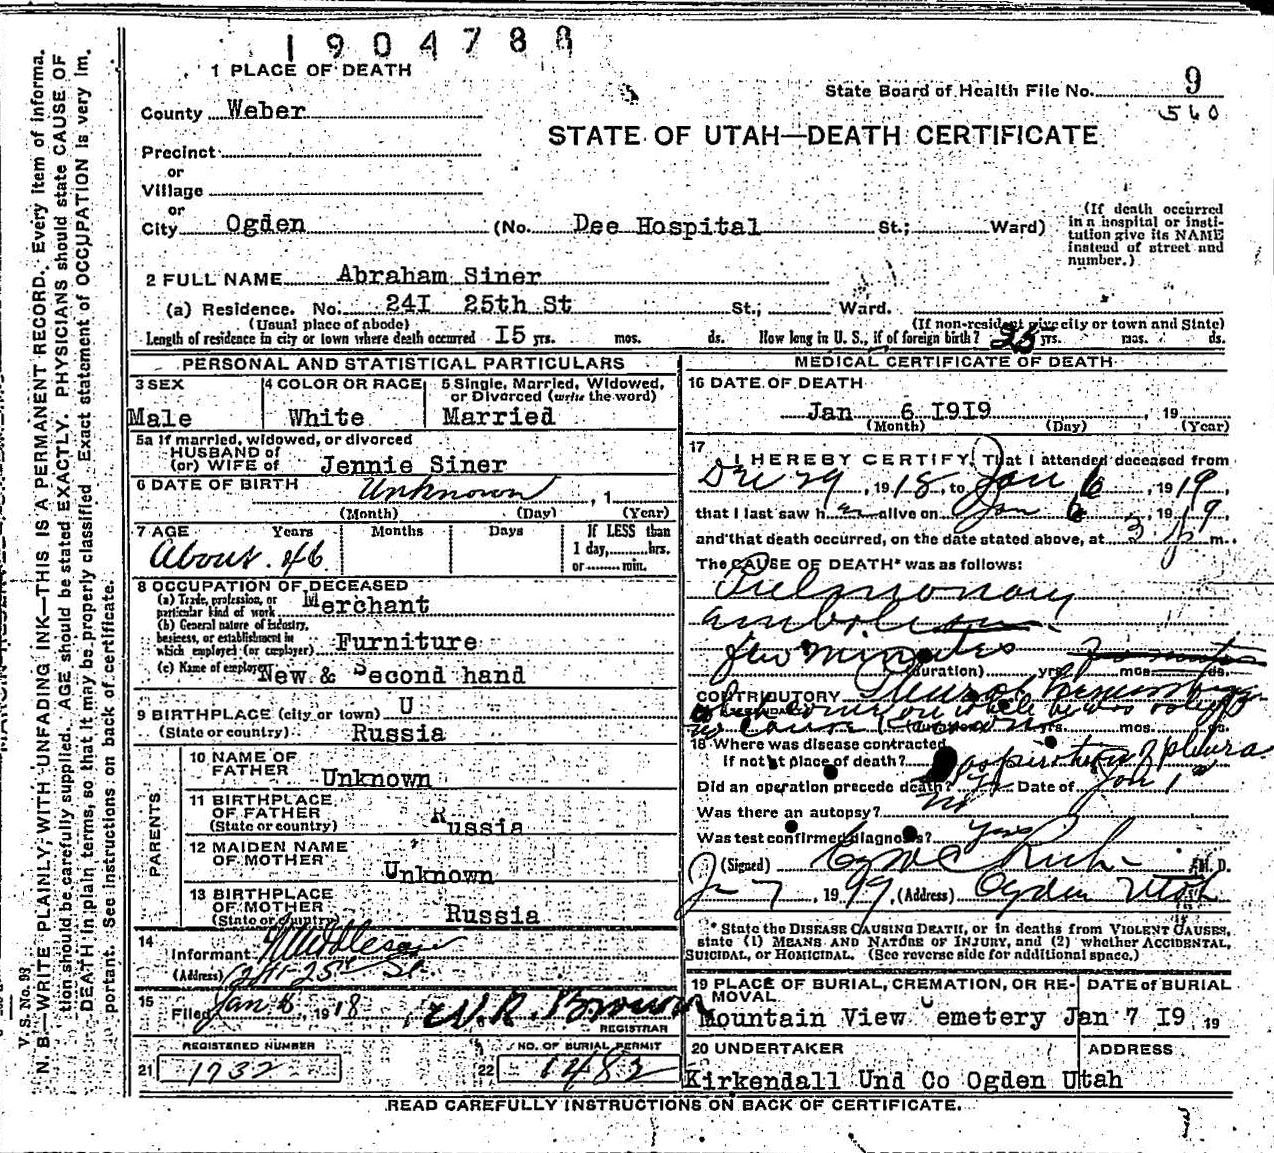 1904788
1 PLACE OF DEATH
State Board of Health File No. 9
560
County Weber
STATE OF UTAH—DEATH CERTIFICATE
Precinct
or
Village
or
City Ogden (No. Dee Hospital St.; Ward)
(If death occurred
in a hospital or insti-
tution give its NAME
instead of street and
number.)
2 FULL NAME Abraham Siner
(a) Residence. No. 24I 25th St St.; Ward.
(Usual place of abode) (If non-resident give city or town and State)
Length of residence in city or town where death occurred I5 yrs. mos. ds. How long in U. S., if of foreign birth? 25 yrs. mos. ds.
PERSONAL AND STATISTICAL PARTICULARS
3 SEX
Male
4 COLOR OR RACE
White
5 Single, Married, Widowed,
or Divorced (write the word)
Married
5a If married, widowed, or divorced
HUSBAND of
(or) WIFE of Jennie Siner
6 DATE OF BIRTH Unknown , 1
(Month) (Day) (Year)
7 AGE Years Months Days If LESS than
1 day, hrs.
or min.
About 46
8 OCCUPATION OF DECEASED
(a) Trade, profession, or
particular kind of work Merchant
(b) General nature of industry,
business, or establishment in
which employed (or employer) Furniture
(c) Name of employer New & Second hand
9 BIRTHPLACE (city or town) U
(State or country) Russia
PARENTS
10 NAME OF
FATHER Unknown
11 BIRTHPLACE
OF FATHER
(State or country) Russia
12 MAIDEN NAME
OF MOTHER
Unknown
13 BIRTHPLACE
OF MOTHER
(State or country) Russia
14
Informant
(Address) 241-25th St.
15
Filed Jan 6, 1918 W. R. Brown
REGISTRAR
REGISTERED NUMBER
21 1732
NO. OF BURIAL PERMIT
22 1482
MEDICAL CERTIFICATE OF DEATH
16 DATE OF DEATH
Jan 6 I9I9 , 19
(Month) (Day) (Year)
17
I HEREBY CERTIFY, That I attended deceased from
Dec 29, 1918, to Jan 6, 1919,
that I last saw h alive on Jan 6, 1919,
and that death occurred, on the date stated above, at 3 P m.
The CAUSE OF DEATH* was as follows:
Pulmonary
embolism
few minutes
(duration) yrs. mos. ds.
CONTRIBUTORY Pleural
(duration) yrs. mos. ds.
18 Where was disease contracted
if not at place of death?
aspiration of pleura
Did an operation precede death? yes Date of Jan 1st
Was there an autopsy? no
Was test confirmed diagnosis? yes
(Signed) Rich M. D.
Jan 7, 1919, (Address) Ogden Utah
* State the DISEASE CAUSING DEATH, or in deaths from VIOLENT CAUSES,
state (1) MEANS AND NATURE OF INJURY, and (2) whether ACCIDENTAL,
SUICIDAL, or HOMICIDAL. (See reverse side for additional space.)
19 PLACE OF BURIAL, CREMATION, OR RE-
MOVAL
Mountain View Cemetery
DATE OF BURIAL
Jan 7 I9, 19
20 UNDERTAKER ADDRESS
Kirkendall Und Co Ogden Utah
READ CAREFULLY INSTRUCTIONS ON BACK OF CERTIFICATE.
V. S. No. 93
N. B.—WRITE PLAINLY, WITH UNFADING INK—THIS IS A PERMANENT RECORD. Every item of informa-
tion should be carefully supplied. AGE should be stated EXACTLY. PHYSICIANS should state CAUSE OF
DEATH in plain terms, so that it may be properly classified. Exact statement of OCCUPATION is very im-
portant. See instructions on back of certificate.